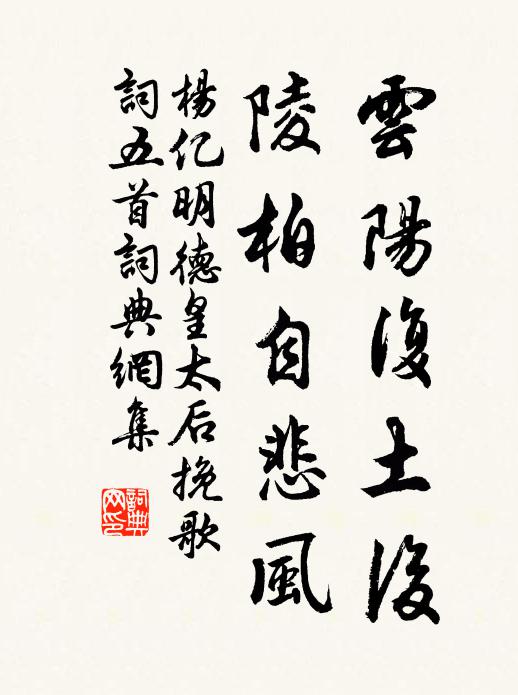 雲陽復土後
陵柏自悲風
楊亿明德皇太后挽歌
詞五首詞典網集
詞典網印